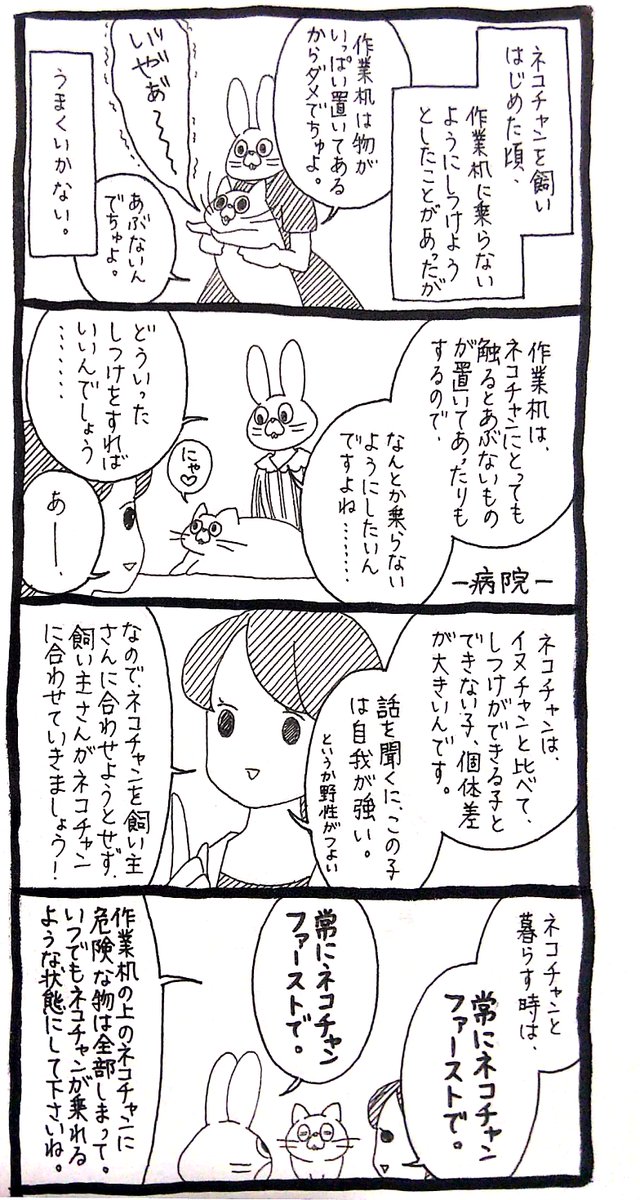 ネコチャンを飼い
はじめた頃、
作業机に乗らない
ようにしつけよう
としたことがあったが
作業机は物が
いっぱい置いてある
からダメでちゅよ。
いやあ〜〜
あぶないん
でちゅよ。
うまくいかない。
作業机は、
ネコチャンにとっても
触るとあぶないもの
が置いてあったりも
するので、
なんとか乗らない
ようにしたいん
ですよね………
ー病院ー
にゃ♡
どういった
しつけをすれば
いいんでしょう
……
あー、
ネコチャンは、
イヌチャンと比べて、
しつけができる子と
できない子、個体差
が大きいんです。
話を聞くに、この子
は自我が強い。
というか野性がつよい
なので、ネコチャンを飼い主
さんに合わせようとせず、
飼い主さんがネコチャン
に合わせていきましょう!
ネコチャンと
暮らす時は、
常にネコチャン
ファーストで。
常にネコチャン
ファーストで。
作業机の上のネコチャンに
危険な物は全部しまって。
いつでもネコチャンが乗れる
ような状態にして下さいね。